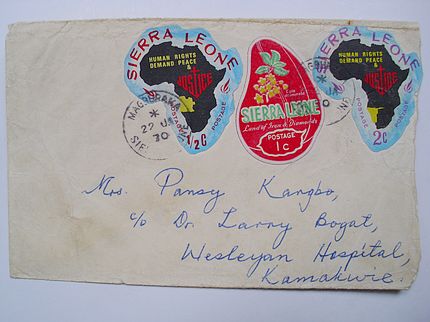 SIERRA LEONE
HUMAN RIGHTS
DEMAND PEACE
&
JUSTICE
POSTAGE
POSTAGE
½C
SIERRA LEONE
Land of Iron & Diamonds
POSTAGE
1c
SIERRA LEONE
HUMAN RIGHTS
DEMAND PEACE
&
JUSTICE
POSTAGE
POSTAGE
2C
27 JA
Mrs. Pansy Kargbo,
c/o Dr. Larry Bogat,
Wesleyan Hospital,
Kamakwie.